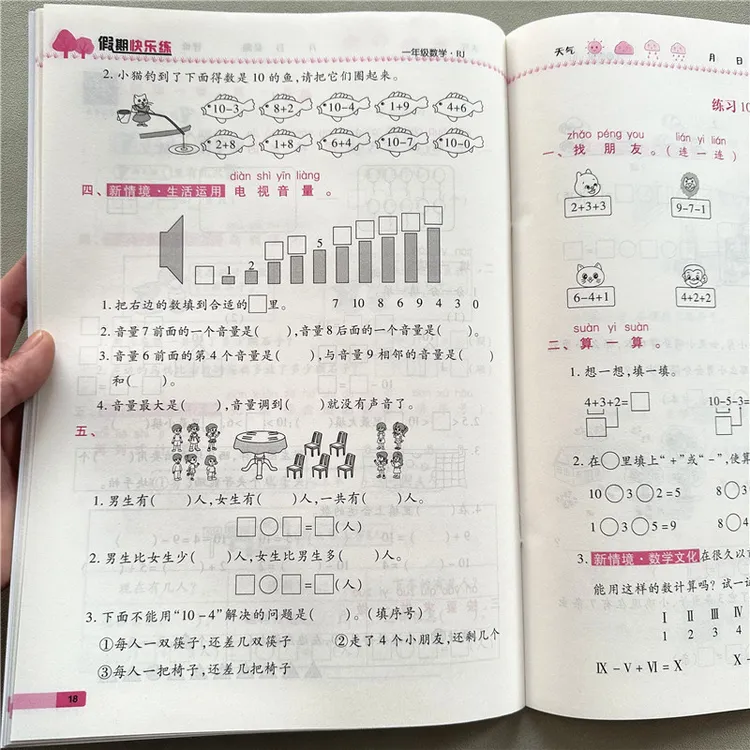 假期快乐练
一年级数学·RJ
2.小猫钓到了下面得数是10的鱼,请把它们圈起来。
10-3 8+2 10-4 1+9 4+6
2+8 1+8 6+4 10-7 10-0
diàn shì yīn liàng
四、新情境·生活运用 电视音量。
1 2 5
1.把右边的数填到合适的□里。 7 10 8 9 4 3 0
2.音量7前面的一个音量是( ),音量8后面的一个音量是( )。
3.音量6前面的第4个音量是( ),与音量9相邻的音量是( )
和( )。
4.音量最大是( ),音量调到( )就没有声音了。
五、
1.男生有( )人,女生有( )人,一共有( )人。
□○□=□(人)
2.男生比女生少( )人,女生比男生多( )人。
□○□=□(人)
3.下面不能用“10-4”解决的问题是( )。(填序号)
①每人一双筷子,还差几双筷子 ②走了4个小朋友,还剩几个
③每人一把椅子,还差几把椅子
18
天气 月 日
练习10
zhǎo péng you lián yi lián
一、找朋友。(连一连)
2+3+3 9-7-1
6-4+1 4+2+2
suàn yi suàn
二、算一算。
1.想一想,填一填。
4+3+2=□ 10-5-3=
2.在○里填上“+”或“-”,使算
10○3○2=5 8○3
1○3○5=9 8○4
3.新情境·数学文化 在很久以
能用这样的数计算吗?试一试
Ⅰ Ⅱ Ⅲ Ⅳ
1 2 3 4
Ⅸ-Ⅴ+Ⅵ=Ⅹ Ⅹ-